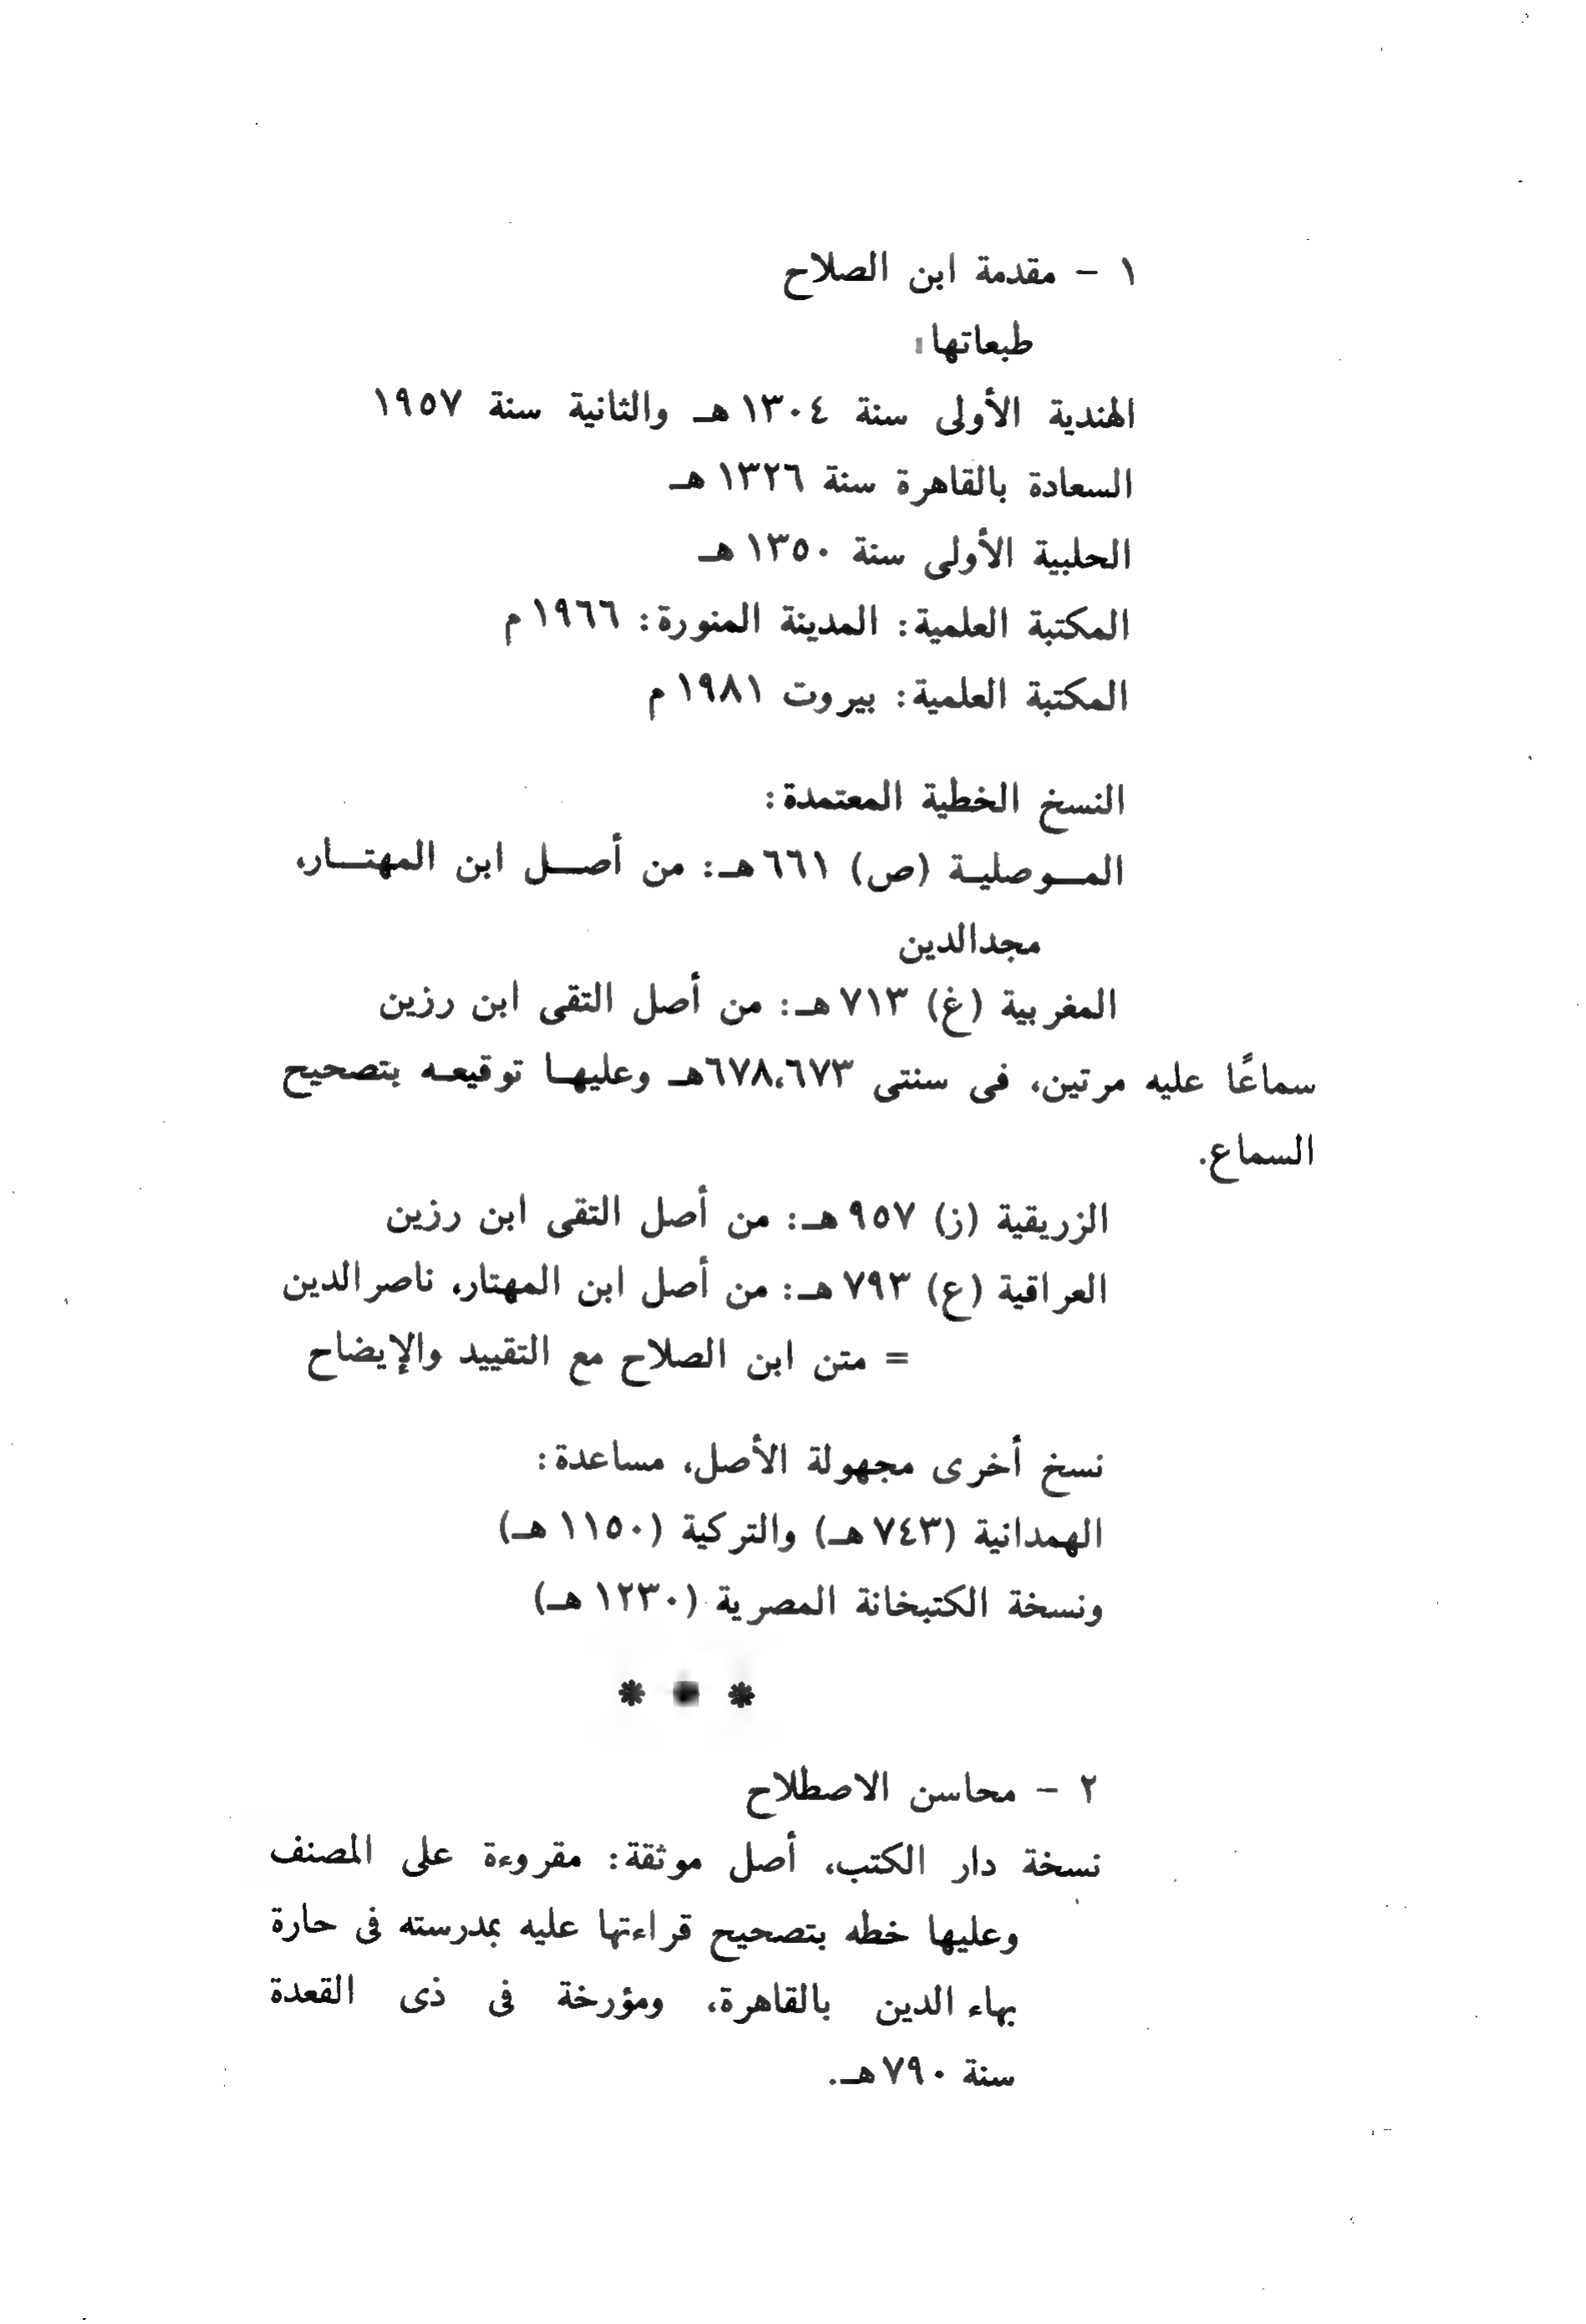 ١ - مقدمة ابن الصلاح
طبعاتها:
الهندية الأولى سنة ١٣٠٤ هـ والثانية سنة ١٩٥٧
السعادة بالقاهرة سنة ١٣٢٦ هـ
الحلبية الأولى سنة ١٣٥٠ هـ
المكتبة العلمية: المدينة المنورة: ١٩٦٦ م
المكتبة العلمية: بيروت ١٩٨١ م
النسخ الخطية المعتمدة:
الموصلية (ص) ٦٦١ هـ: من أصل ابن المهتار،
مجدالدين
المغربية (غ) ٧١٣ هـ: من أصل التقى ابن رزين
سماعًا عليه مرتين، فى سنتى ٦٧٨،٦٧٣هـ وعليها توقيعه بتصحيح
السماع.
الزريقية (ز) ٩٥٧ هـ: من أصل التقى ابن رزين
العراقية (ع) ٧٩٣ هـ: من أصل ابن المهتار، ناصرالدين
= متن ابن الصلاح مع التقييد والإيضاح
نسخ أخرى مجهولة الأصل، مساعدة:
الهمدانية (٧٤٣ هـ) والتركية (١١٥٠ هـ)
ونسخة الكتبخانة المصرية (١٢٣٠ هـ)
* * *
٢ - محاسن الاصطلاح
نسخة دار الكتب، أصل موثقة: مقروءة على المصنف
وعليها خطه بتصحيح قراءتها عليه بمدرسته فى حارة
بهاء الدين بالقاهرة، ومؤرخة فى ذى القعدة
سنة ٧٩٠ هـ.